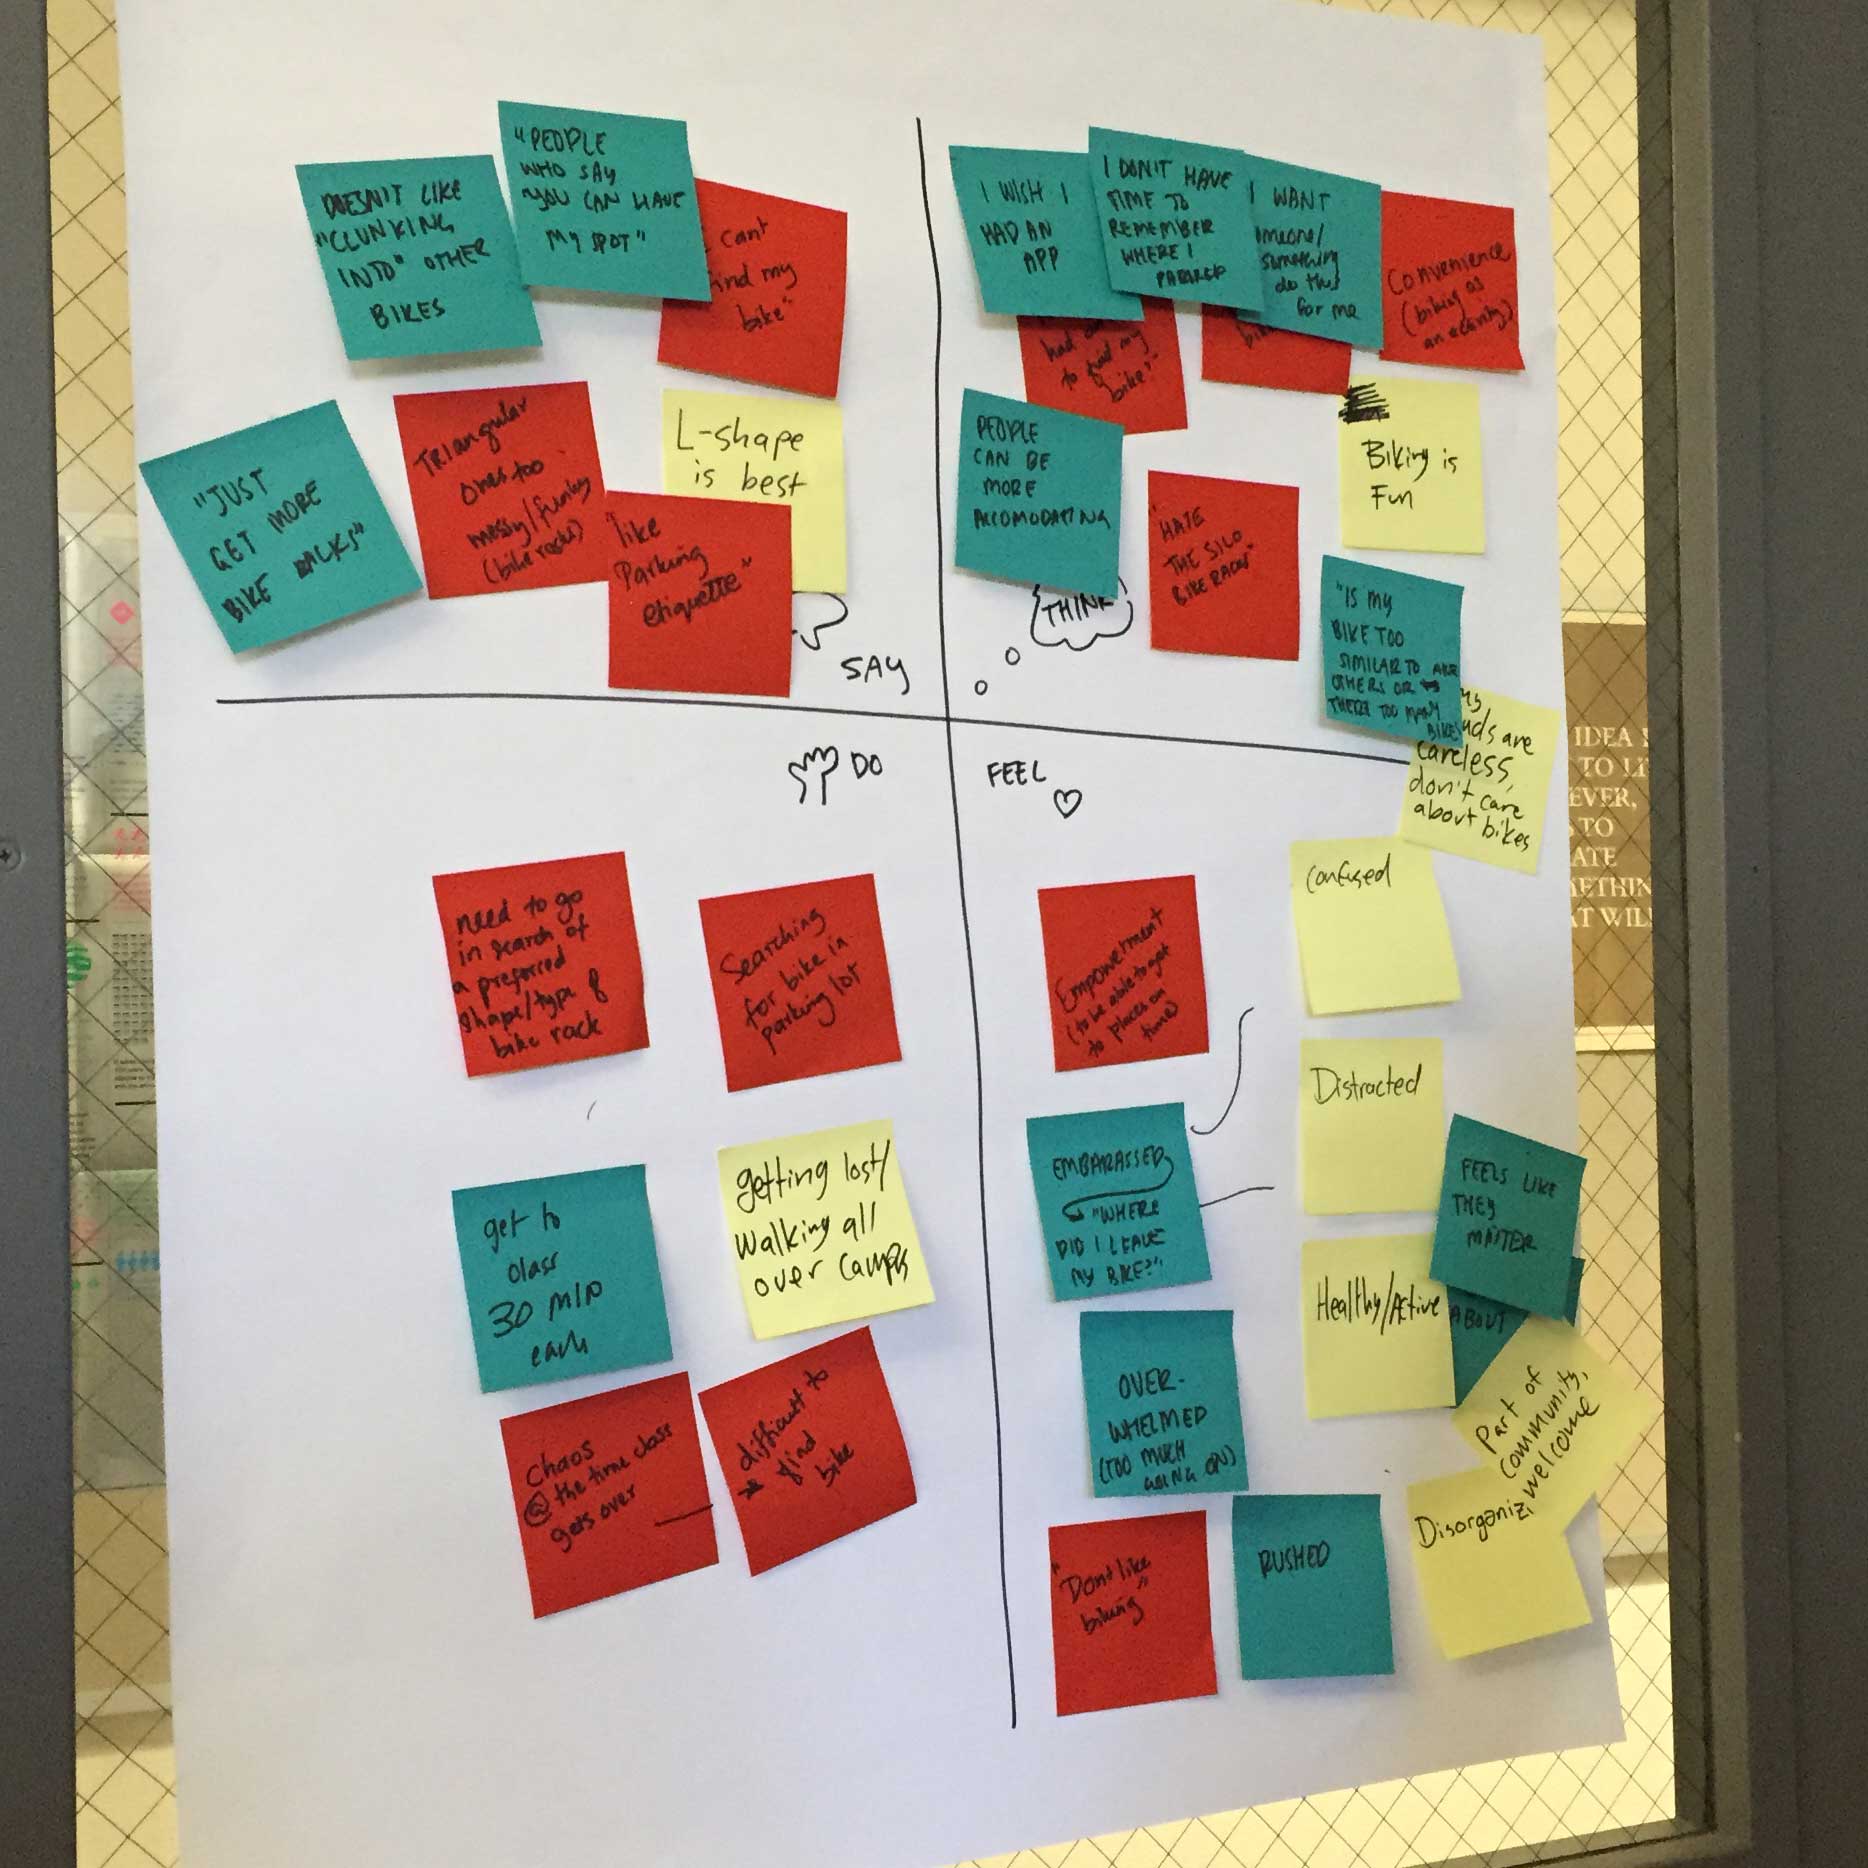 DOESN'T LIKE
"CLUNKING
INTO" OTHER
BIKES
"PEOPLE
WHO SAY
YOU CAN HAVE
MY SPOT"
cant
find my
bike"
"JUST
GET MORE
BIKE RACKS"
Triangular
ones too
messy/funky
(bike racks)
L-shape
is best
like
Parking
etiquette"
SAY
I WISH I
HAD AN
APP
I DON'T HAVE
TIME TO
REMEMBER
WHERE I
PARKED
I WANT
something
do this
for me
Convenience
(biking as
an activity)
had
to find my
bike"
PEOPLE
CAN BE
MORE
ACCOMODATING
"HATE
THE SILO
BIKE RACKS"
Biking is
Fun
THINK
"IS MY
BIKE TOO
SIMILAR TO
OTHERS OR
THERE TOO MANY
BIKES
are
careless,
don't care
about bikes
DO
need to go
in search of
a preferred
shape/type of
bike rack
Searching
for bike in
parking lot
get to
class
30 MIN
early
getting lost/
walking all
over campus
chaos
@ the time class
gets over
difficult to
find
bike
FEEL
Empowerment
(to be able to get
to places on
time)
Confused
EMBARASSED
"WHERE
DID I LEAVE
MY BIKE?"
Distracted
FEELS LIKE
THEY
MATTER
Healthy/Active
ABOUT
OVER-
WHELMED
(TOO MUCH
GOING ON)
Part of
community,
welcome
"Dont like
biking"
RUSHED
IDEA
TO
EVER,
TO